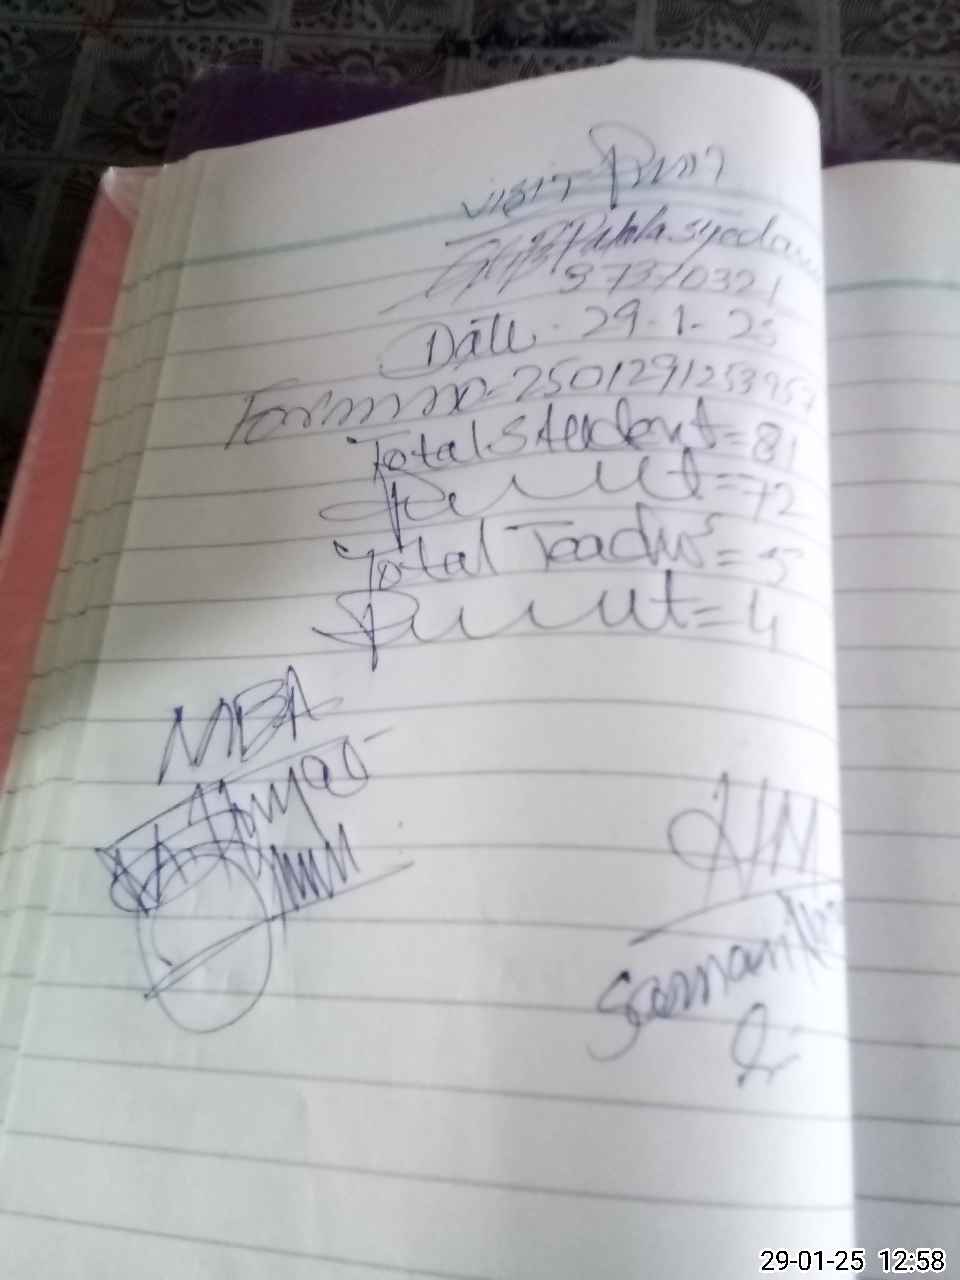 Visit Print
GGPS Pahla syedan
37310321
Date. 29.1.25
Form no. 250129125395
Total Student = 81
Present = 72
Total Teacher = 5
Present = 4
MBA
HM
29-01-25 12:58